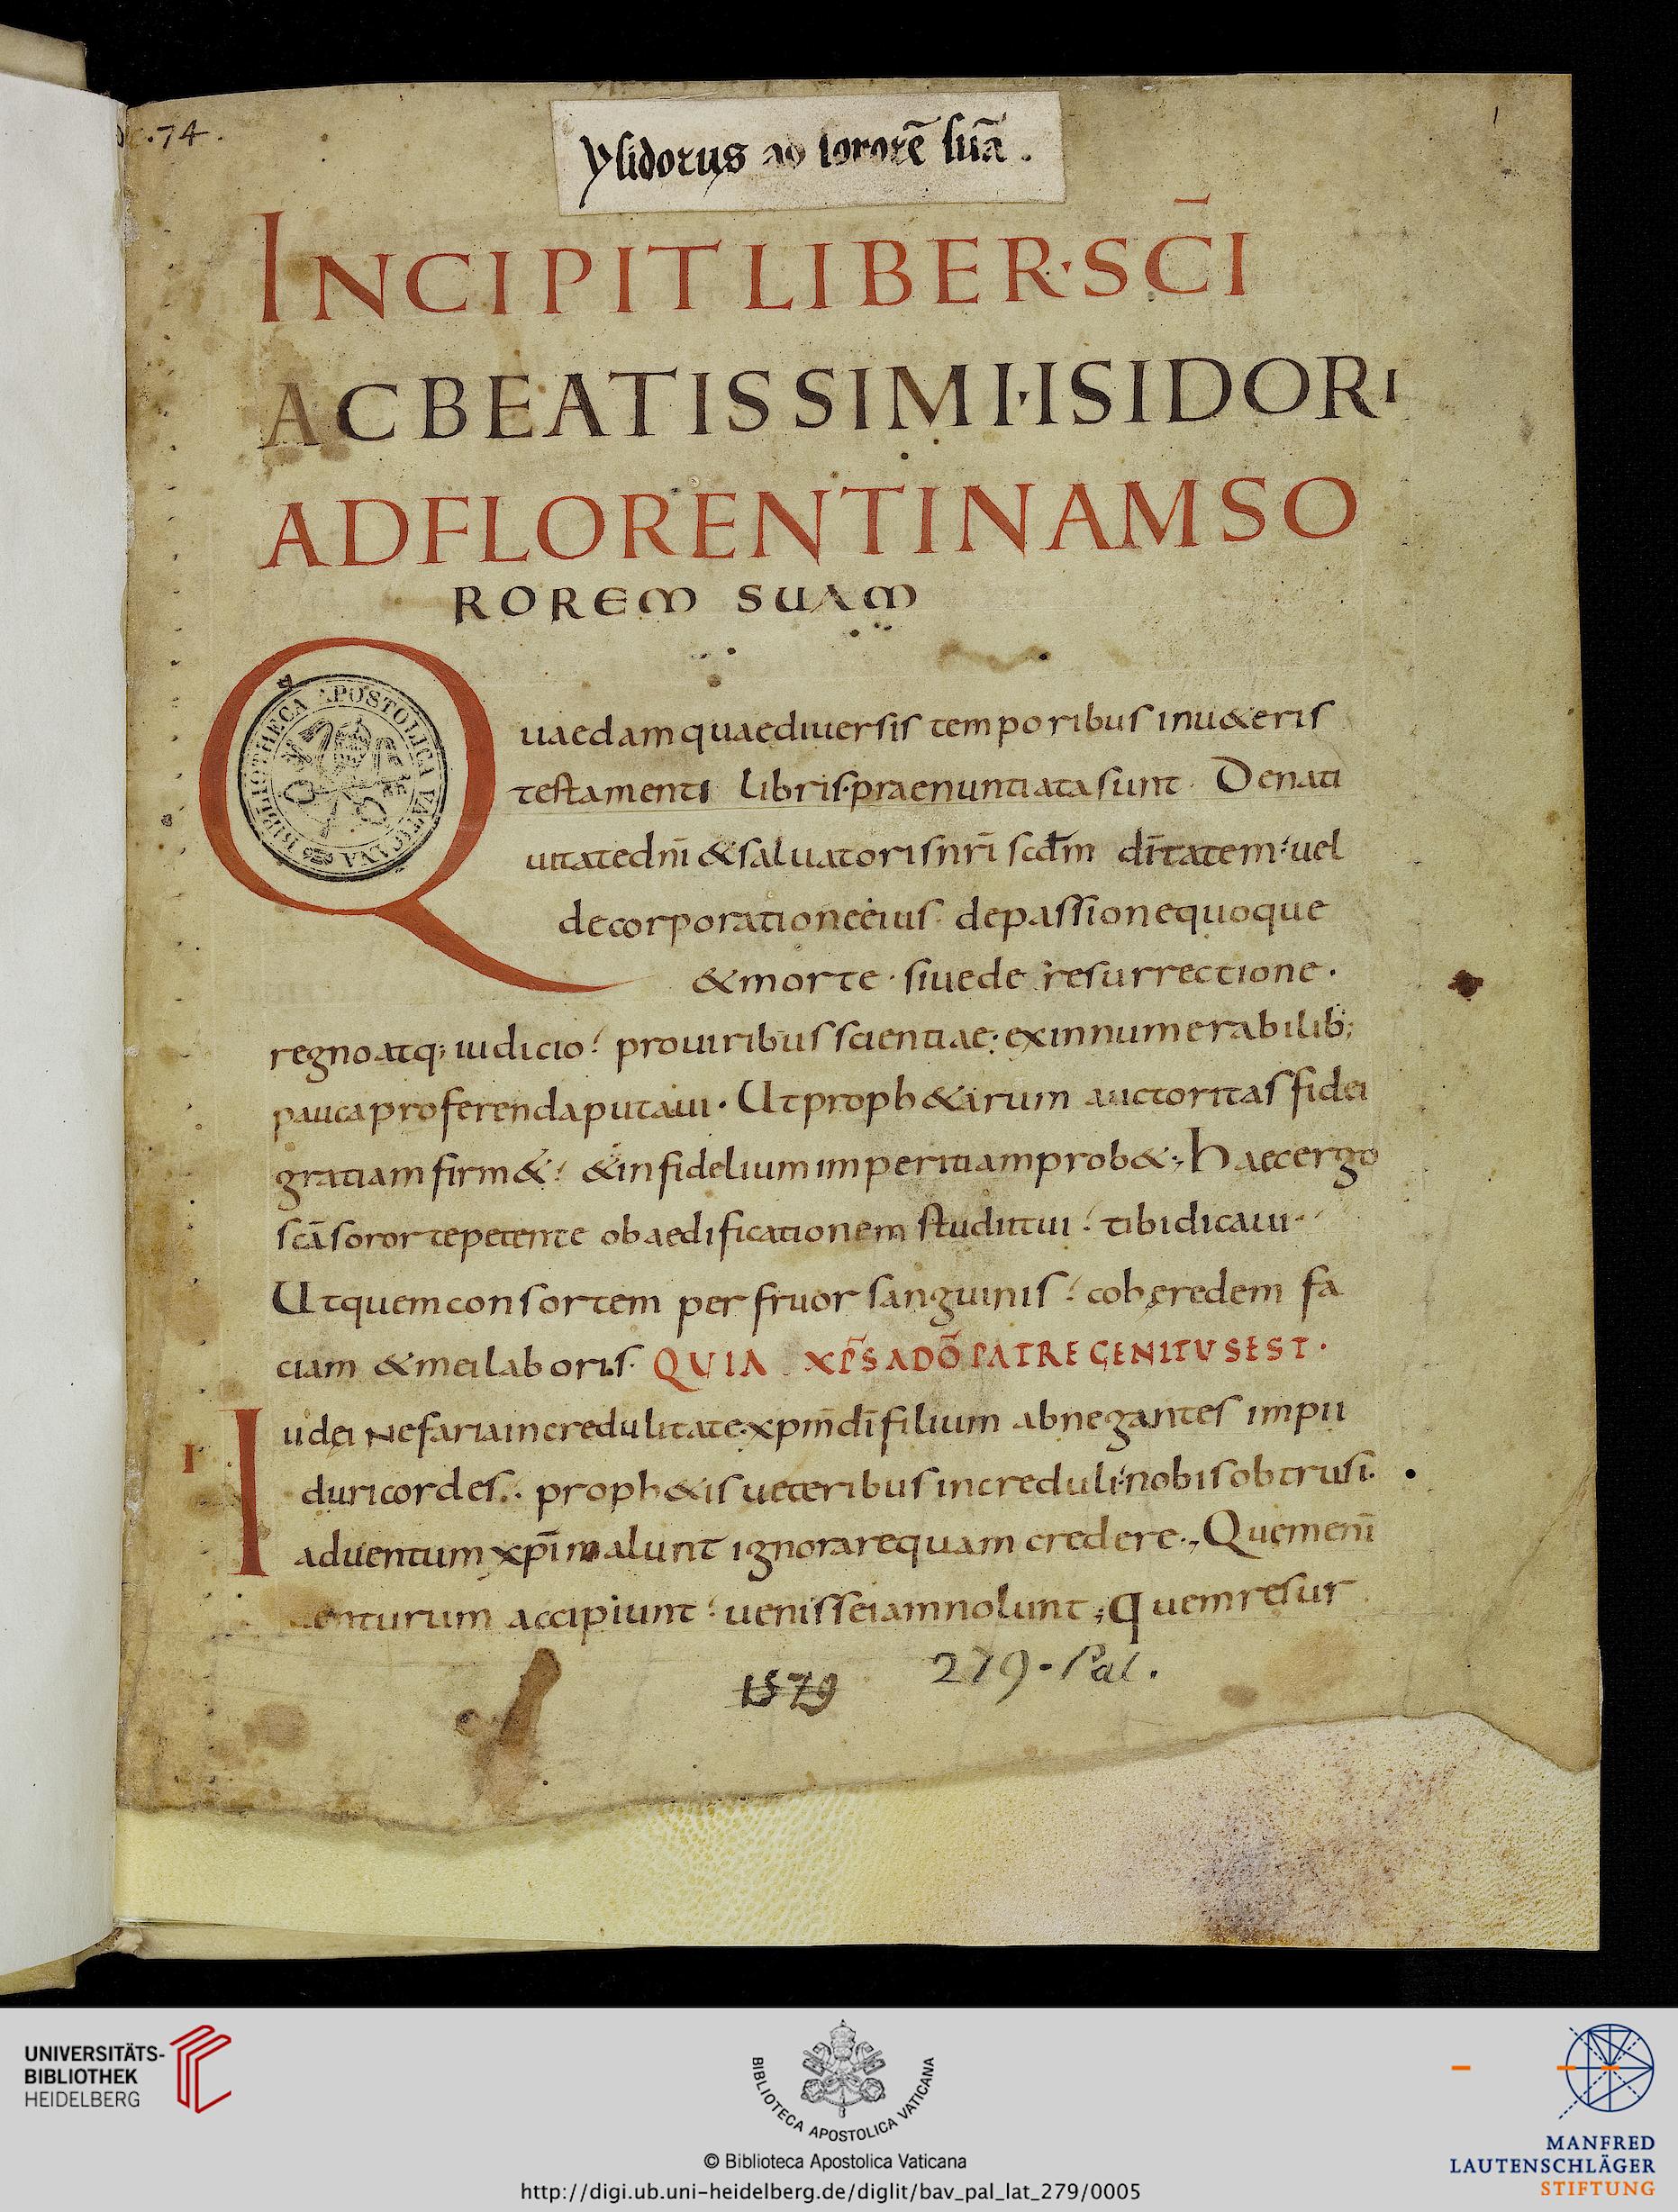 .74.
1
ysidorus ad sororē suā.
INCIPIT LIBER·SC̅I
AC BEATISSIMI·ISIDORI
AD FLORENTINAM SO
ROREM SUAM
BIBLIOTHECA APOSTOLICA VATICANA
Quaedam quae diuersis temporibus inu&eris
testamenti libris praenuntiata sunt. De nati
uitate dn̄i & saluatoris nr̄i scdm̄ dī̄tatem; uel
de corporatione eius. de passione quoque
& morte. siue de resurrectione.
regno atq; iudicio? pro uiribus scientiae; ex innumerabilib;
pauca proferenda putaui. Ut proph&arum auctoritas fidei
gratiam firm&? & infidelium imperitiam prob&; Haec ergo
scā soror te petente ob aedificationem studii tui? tibi dicaui.
Ut quem consortem perfruor sanguinis? coheredem fa
ciam & mei laboris. QUIA XP̅S A DŌ PATRE GENITUS EST.
I
Iudei nefaria incredulitate xpm̄ dī filium abnegantes impii
duri cordes. proph&is ueteribus increduli; nobis obtrusi.
aduentum xpī malunt ignorare quam credere; Quem enī
uenturum accipiunt? uenisse iam nolunt; Quem resur
1579 279·Pal.
UNIVERSITÄTS-
BIBLIOTHEK
HEIDELBERG
BIBLIOTECA APOSTOLICA VATICANA
© Biblioteca Apostolica Vaticana
http://digi.ub.uni-heidelberg.de/diglit/bav_pal_lat_279/0005
MANFRED
LAUTENSCHLÄGER
STIFTUNG